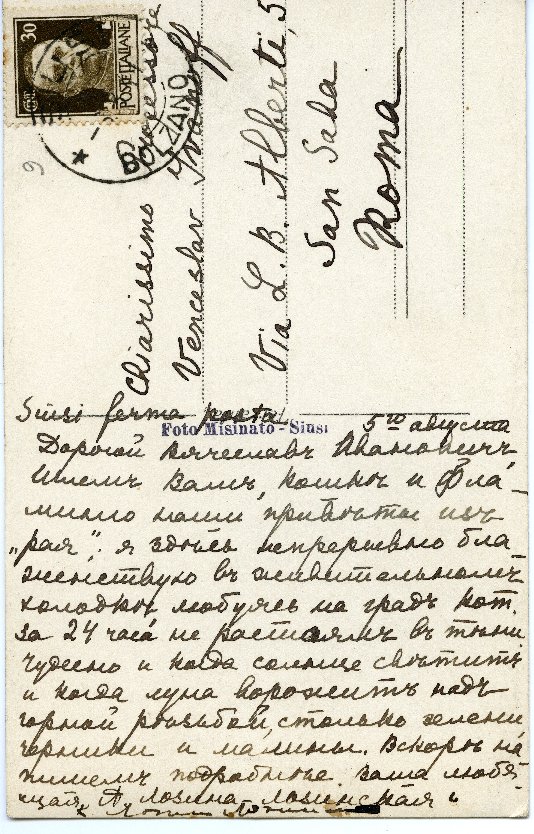 30
POSTE ITALIANE
BOLZANO
9
Chiarissimo Professore
Venceslav Ivanoff
Via L. B. Alberti, 5
San Saba
Roma
Siusi ferma posta
Foto Misinato - Siusi
5го августа
Дорогой Вячеславъ Ивановичъ,
Шлемъ Вамъ, кошкѣ и Фла-
минго наши привѣты изъ
„рая“: я здѣсь непрерывно бла-
женствую въ живительномъ
холодкѣ, любуясь на градъ кот.
за 24 часа не растаялъ въ тѣни
чудесно и когда солнце свѣтитъ
и когда луна ворожитъ надъ
горной рѣзьбой, столько зелени
черники и малины. Вскорѣ на
пишемъ подробнѣе. Ваша любя-
щая